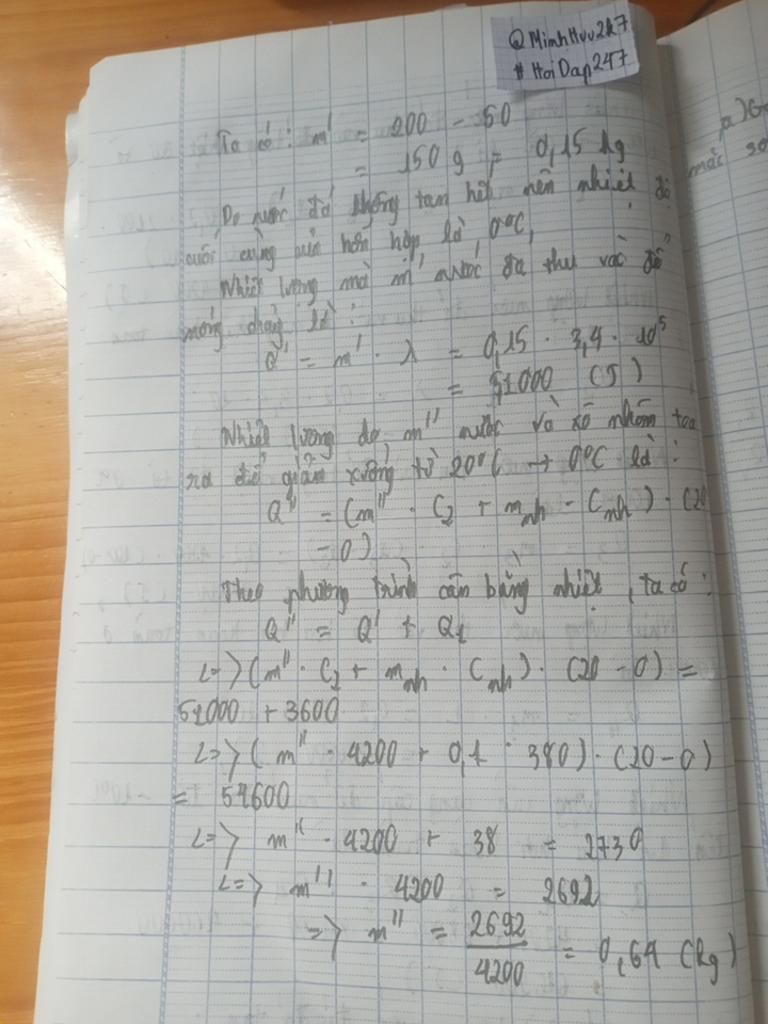 @MinhHuu2k7
#HoiDap247
Ta có: m' = 200 - 50
= 150 g = 0,15 kg
Do nước đá không tam hết nên nhiệt độ
cuối cùng của hỗn hợp là 0°C,
Nhiệt lượng mà m' nước đá thu vào để
nóng chảy là:
Q' = m' . λ = 0,15 . 3,4 . 10⁵
= 51000 (J)
Nhiệt lượng do m'' nước và xô nhôm toa
ra để giảm xuống từ 20°C → 0°C là:
Q'' = (m'' . C₂ + mnh - Cnh) . (20
- 0)
Theo phương trình cân bằng nhiệt, ta có:
Q'' = Q' + Q1
<=> (m'' . C₂ + mnh . Cnh) . (20 - 0) =
51000 + 3600
<=> (m'' . 4200 + 0,1 . 380) . (20 - 0)
= 54600
<=> m'' . 4200 + 38 = 2730
<=> m'' . 4200 = 2692
=> m'' = 2692/4200 = 0,64 (kg)
a)
mắc so